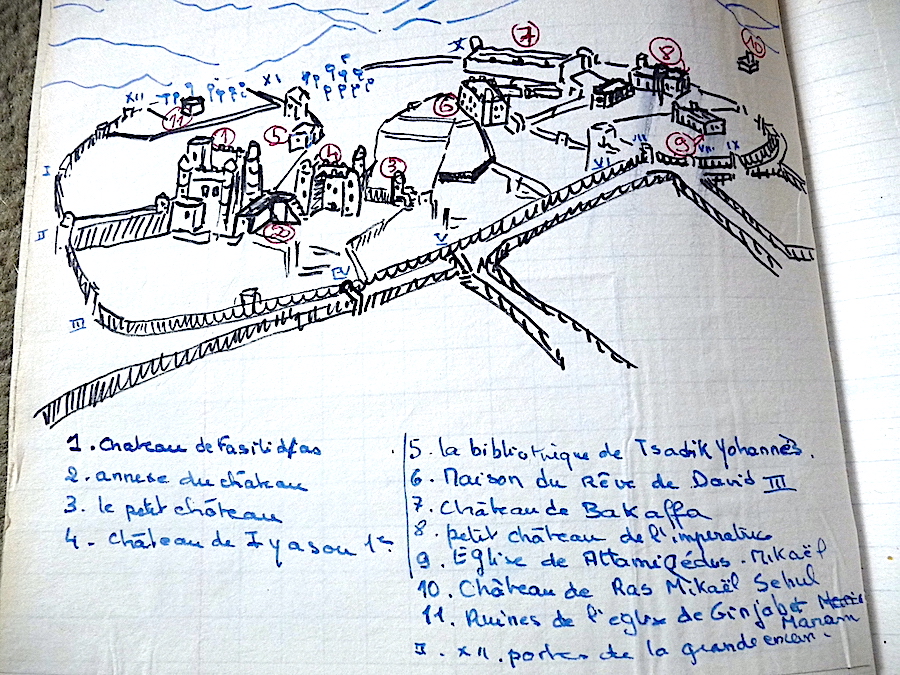 7
8
10
X
XI
XII
11
6
5
1
4
3
9
I
2
VI
VII
VIII
IX
II
V
IV
III
1. Chateau de Fasilidas
2. annexe du château
3. le petit château
4. Château de Iyasou 1er
5. la bibliothèque de Tsadik Yohannès.
6. Maison du Rêve de David III
7. Château de Bakaffa
8. petit château de l'imperatrice
9. Eglise de Attamigédus. Mikaël
10. Château de Ras Mikaël Sehul
11. Ruines de l'eglise de Ginjabet
Mariam
I. XII. portes de la grande